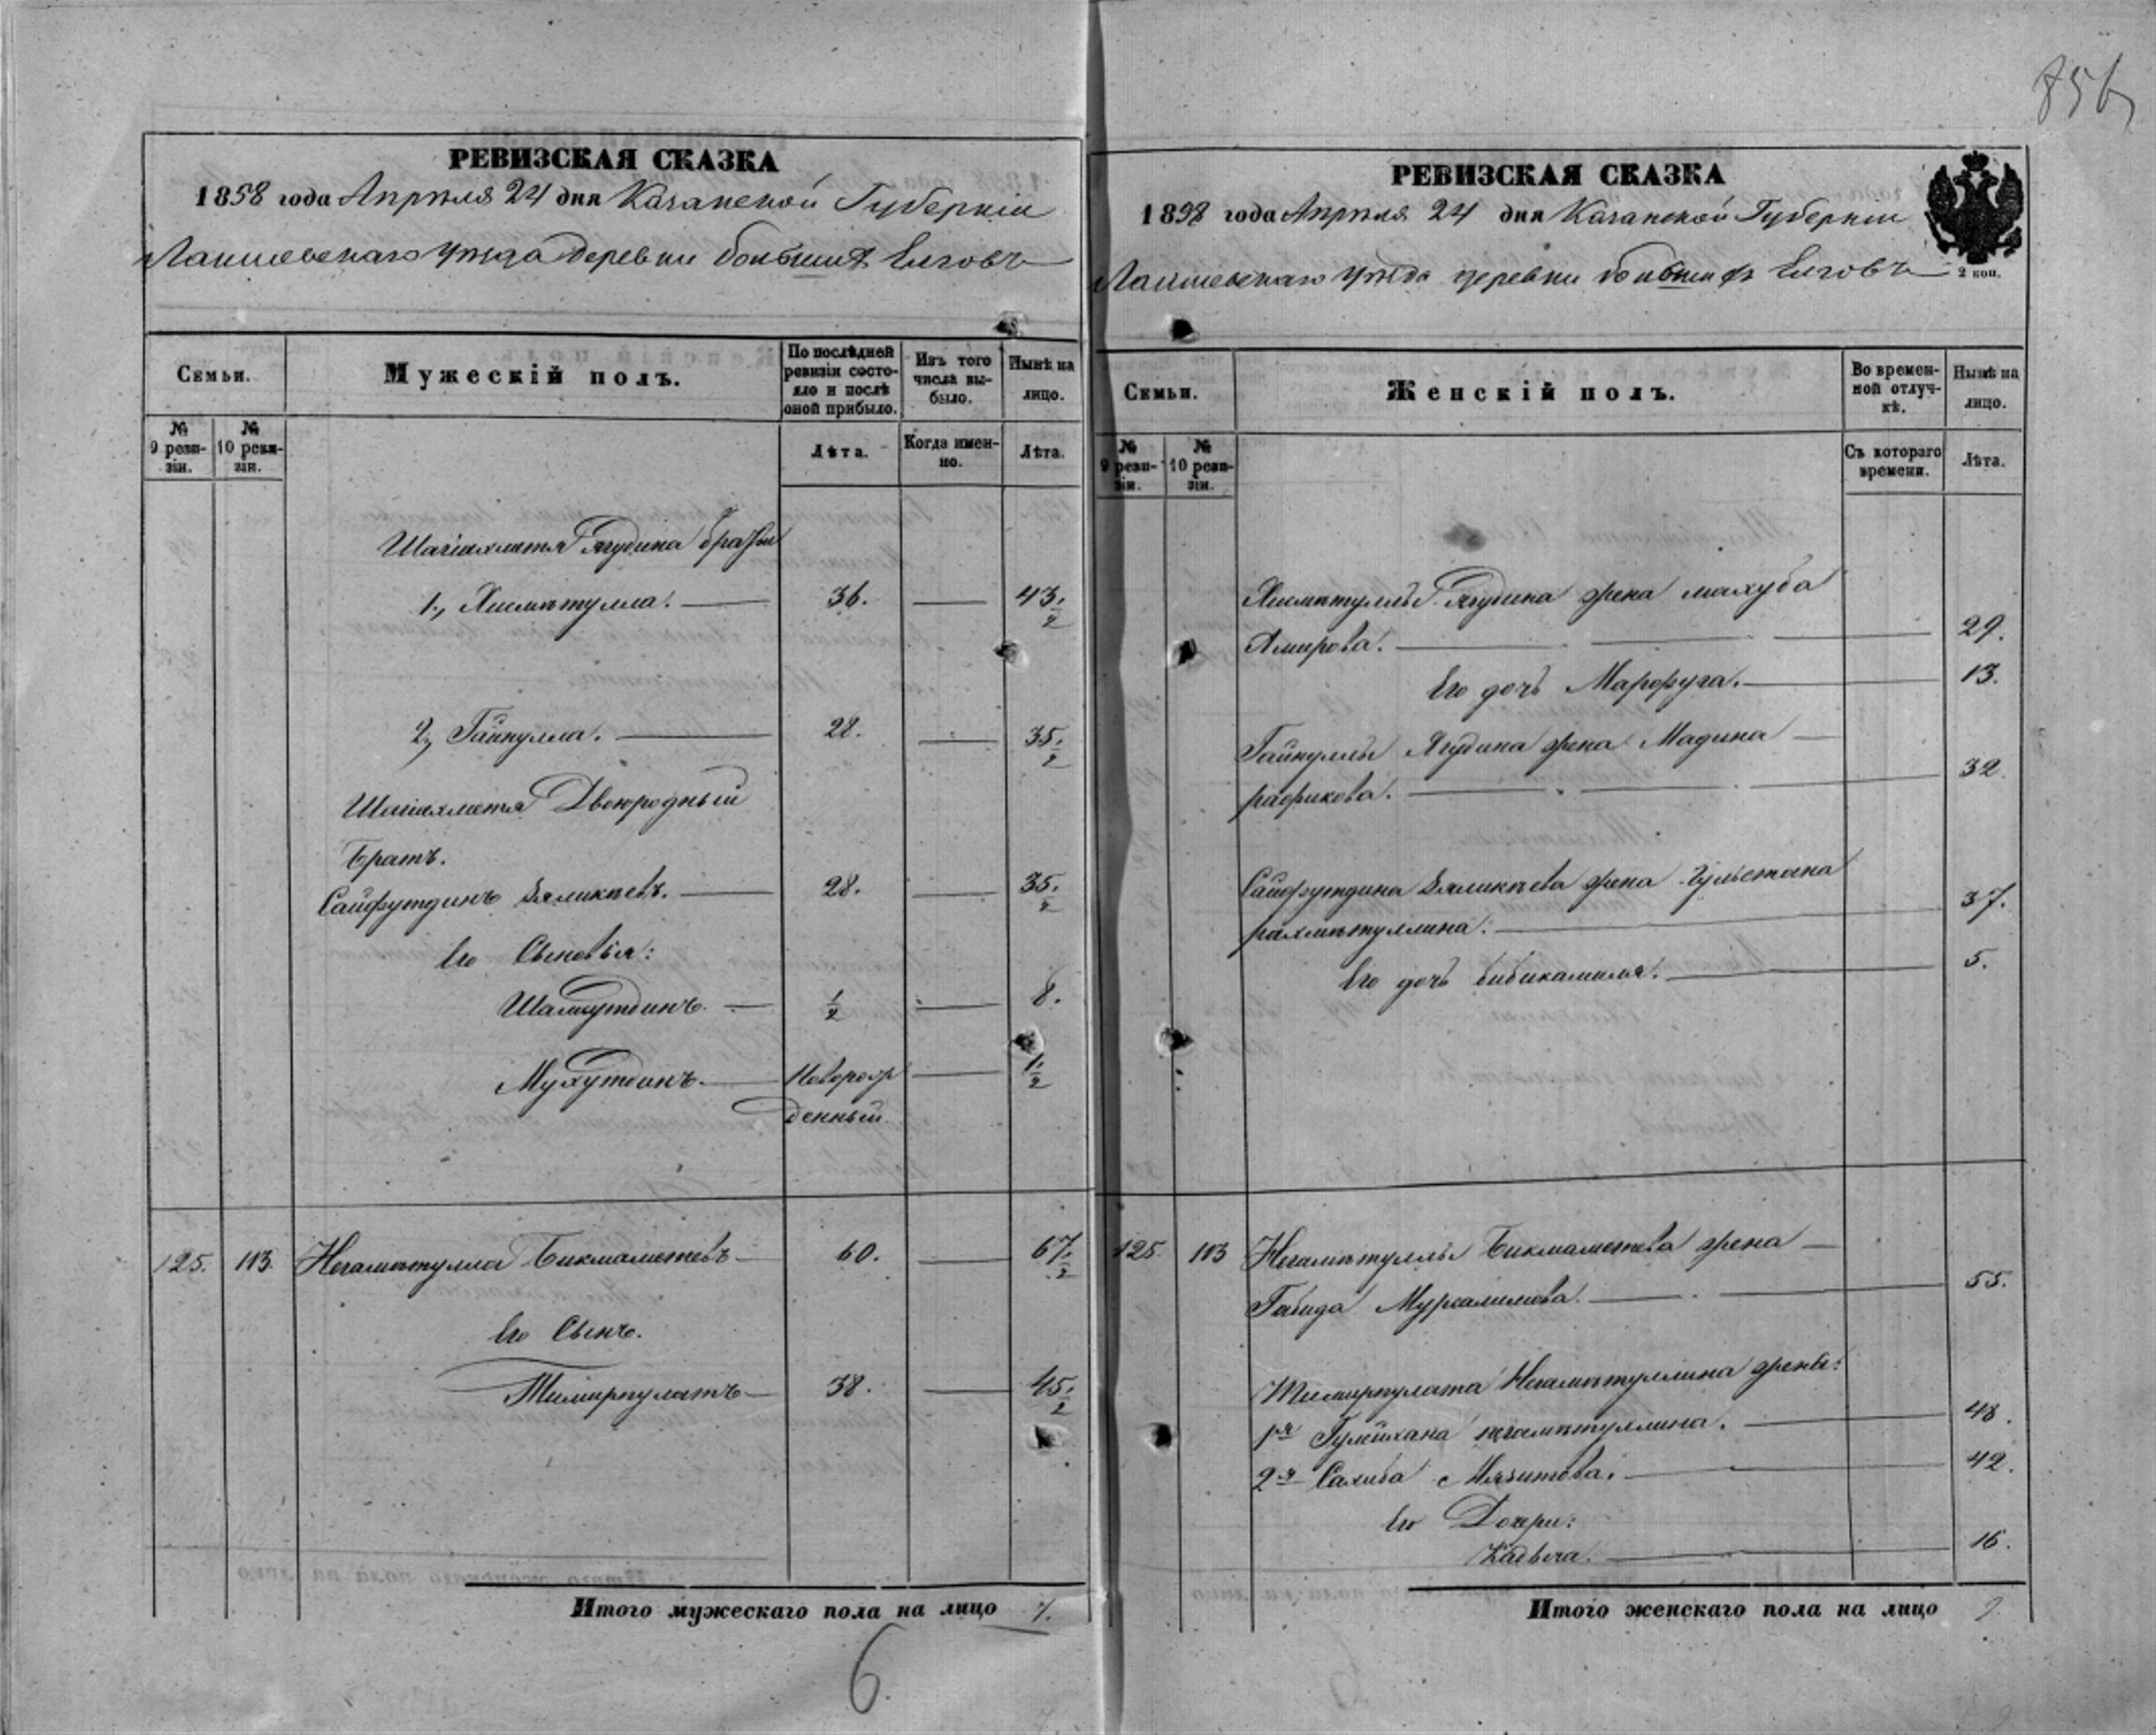 856
РЕВИЗСКАЯ СКАЗКА
1858 года Апрѣля 24 дня Казанской Губерніи
Лаишевскаго уѣзда деревни большихъ Елговъ
Семьи.
Мужескій полъ.
По послѣдней ревизіи состояло и послѣ оной прибыло.
Изъ того числа выбыло.
Нынѣ на лицо.
№ 9 ревизіи.
№ 10 ревизіи.
Лѣта.
Когда именно.
Лѣта.
Шагіахметя Ягудина братья
1, Хисмѣтулла. 36. 43 1/2
2, Гайнулла. 28. 35 1/2
Шагіахметя Двоюродный
братъ.
Сайфутдинъ Вяликѣевъ. 28. 35 1/2
Его Сыновья:
Шамсутдинъ. 1/2 8.
Мухутдинъ. Новорож 1/2
денный.
125. 113. Негамѣтулла Бикмаметевъ 60. 67 1/2
Его Сынъ.
Тимирпулатъ 38. 45 1/2
Итого мужескаго пола на лицо 7.
6
РЕВИЗСКАЯ СКАЗКА
1858 года Апрѣля 24 дня Казанской Губерніи
Лаишевскаго уѣзда деревни большихъ Елговъ
2 коп.
Семьи.
Женскій полъ.
Во временной отлучкѣ.
Нынѣ на лицо.
№ 9 ревизіи.
№ 10 ревизіи.
Съ котораго времени.
Лѣта.
Хисмѣтуллы Ягудина жена махуба
Амирова. 29.
Его дочь Марфуга. 13.
Гайнуллы Ягудина жена Мадина
рафикова. 32.
Сайфутдина Вяликѣева жена Гульстана
рахмѣтуллина. 37.
Его дочь бибикамиля. 5.
125. 113 Негамѣтуллы Бикмаметева жена
Габида Мурсалимова. 55.
Тимирпулата Негамѣтуллина жены:
1я Гулейхана негамѣтуллина. 48.
2я Салиха Мязитова. 42.
Его Дочери:
16.
Итого женскаго пола на лицо